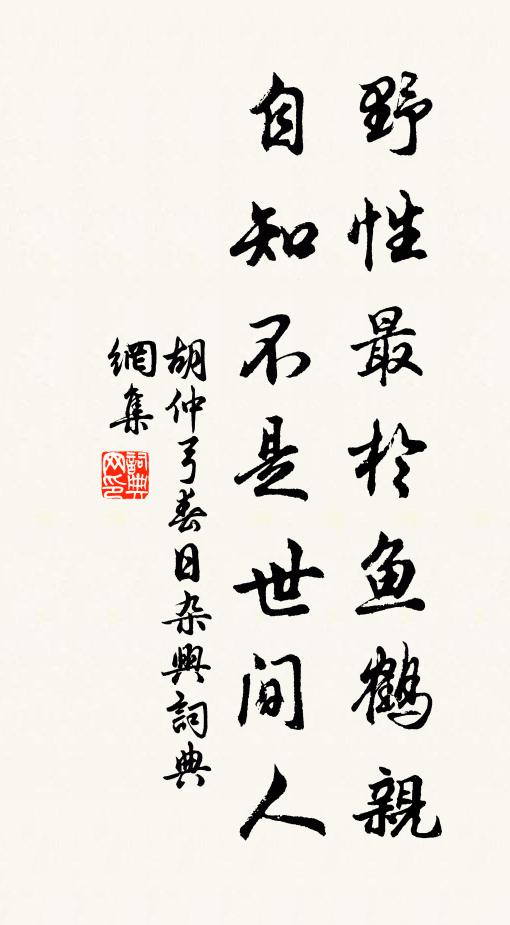 野性最於鱼鶴親
自知不是世间人
胡仲弓春日杂興詞典
網集
詞典网印